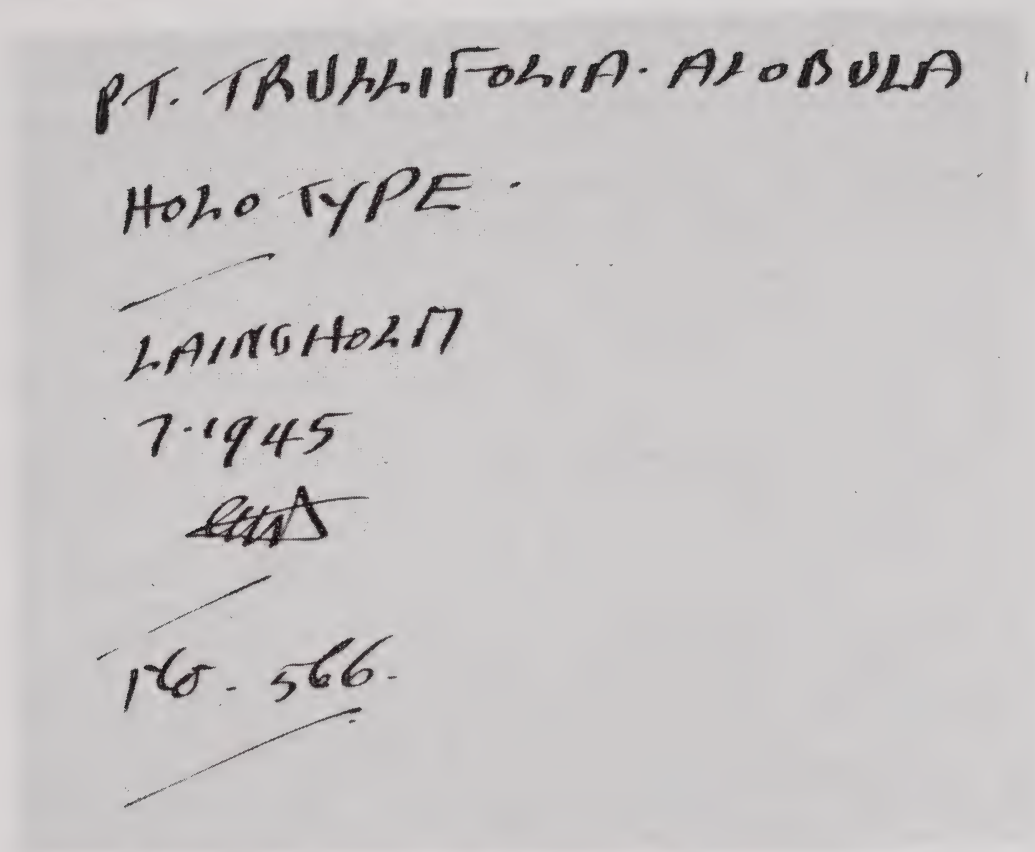 PT. TRULLIFOLIA. ALOBULA
HOLOTYPE.
LAINGHOLM
7.1945
No. 566.